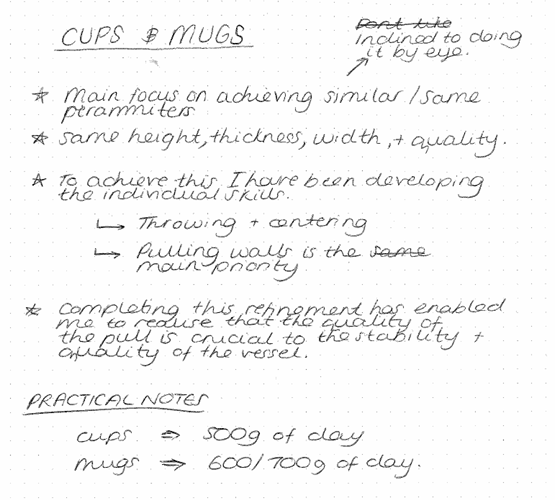 CUPS & MUGS
Dont like
Inclined to doing
it by eye.
* Main focus on achieving similar/same
perammiters
* same height, thickness, width, + quality.
* To achieve this I have been developing
the individual skills.
↳ Throwing + centering
↳ Pulling walls is the same
main priority
* completing this refinement has enabled
me to realise that the quality of
the pull is crucial to the stability +
quality of the vessel.
PRACTICAL NOTES
cups ⇒ 500g of clay
mugs ⇒ 600/700g of clay.